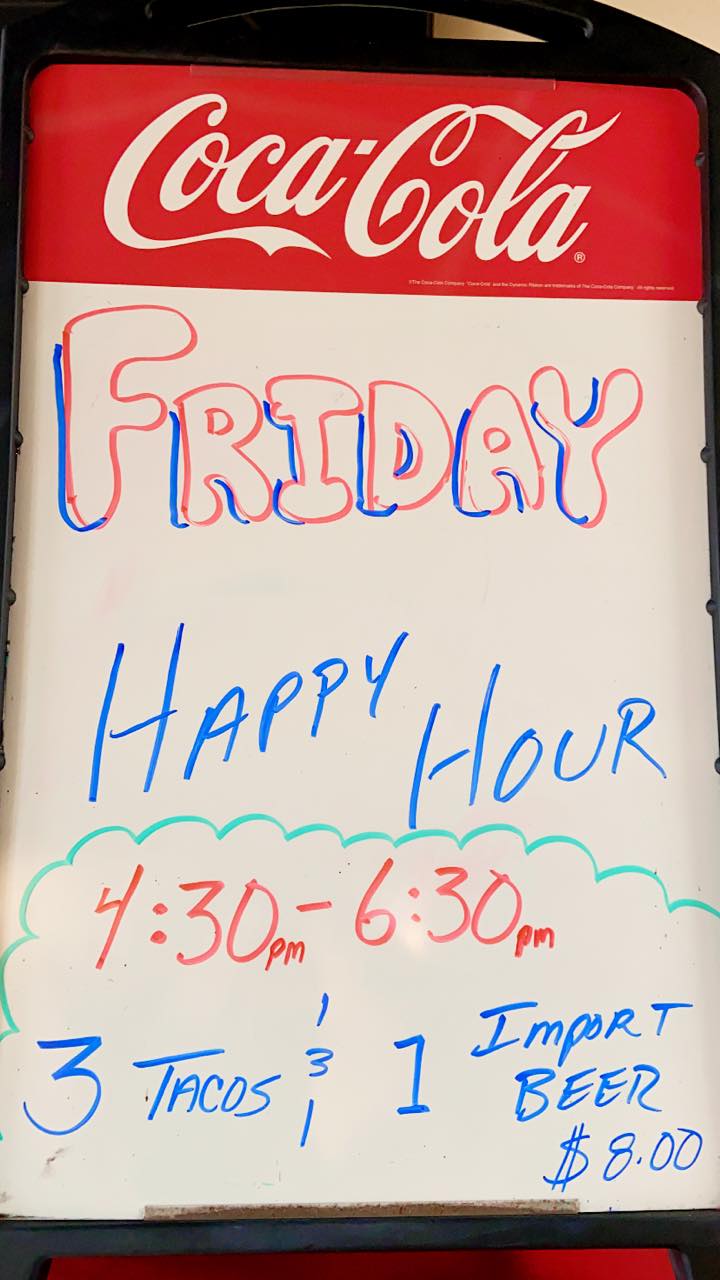 Coca-Cola®
©The Coca-Cola Company. "Coca-Cola" and the Dynamic Ribbon are trademarks of The Coca-Cola Company. All rights reserved.
FRIDAY
HAPPY HOUR
4:30pm - 6:30pm
3 TACOS & 1 IMPORT
BEER
$8.00